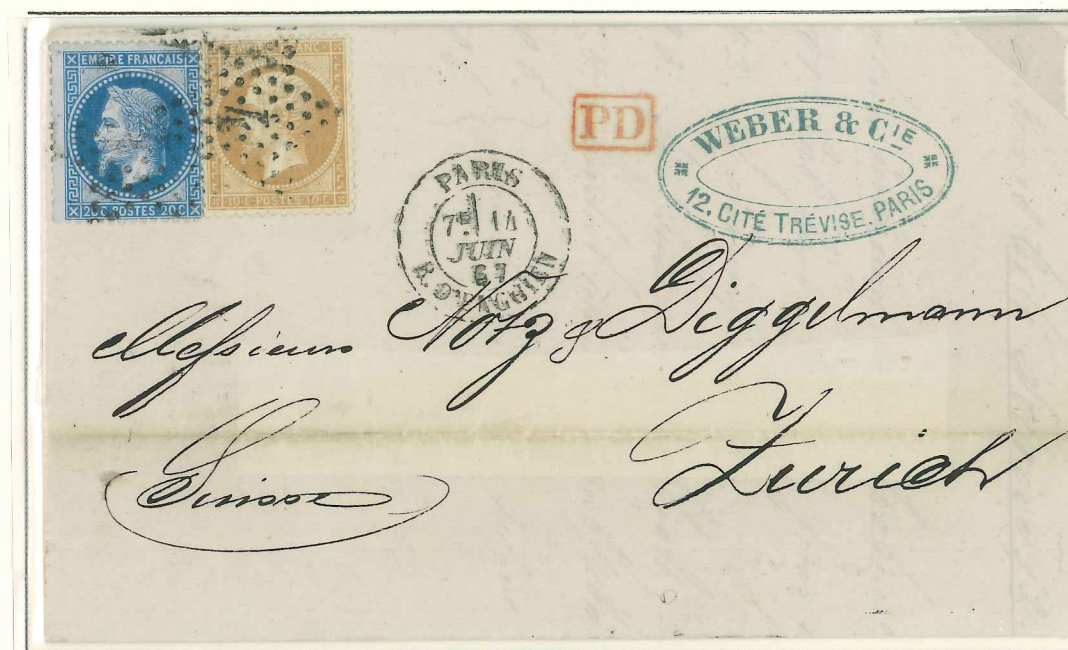 EMPIRE FRANÇAIS
20 C POSTES 20 C
EMPIRE FRANC
10 C POSTES 10 C
PD
WEBER & CIE
12. CITÉ TRÉVISE. PARIS
PARIS
14
JUIN
67
R. D'ENGHIEN
Messieurs Notz & Diggelmann
Zurich
Suisse